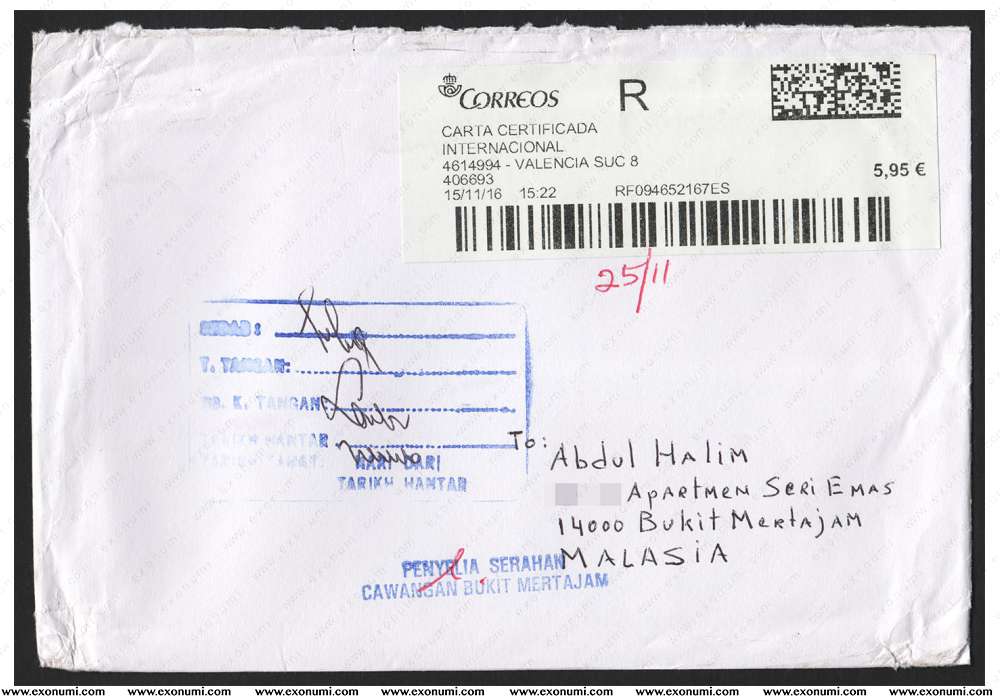 CORREOS
R
CARTA CERTIFICADA
INTERNACIONAL
4614994 - VALENCIA SUC 8
406693
15/11/16 15:22 RF094652167ES
5,95 €
25/11
T. TANGAN:
K. TANGAN
TARIKH HANTAR
HARI DARI
TARIKH HANTAR
To:
Abdul Halim
Apartmen Seri Emas
14000 Bukit Mertajam
MALASIA
PENYELIA SERAHAN
CAWANGAN BUKIT MERTAJAM
www.exonumi.com www.exonumi.com www.exonumi.com www.exonumi.com www.exonumi.com www.exonumi.com www.exonumi.com www.exonumi.com